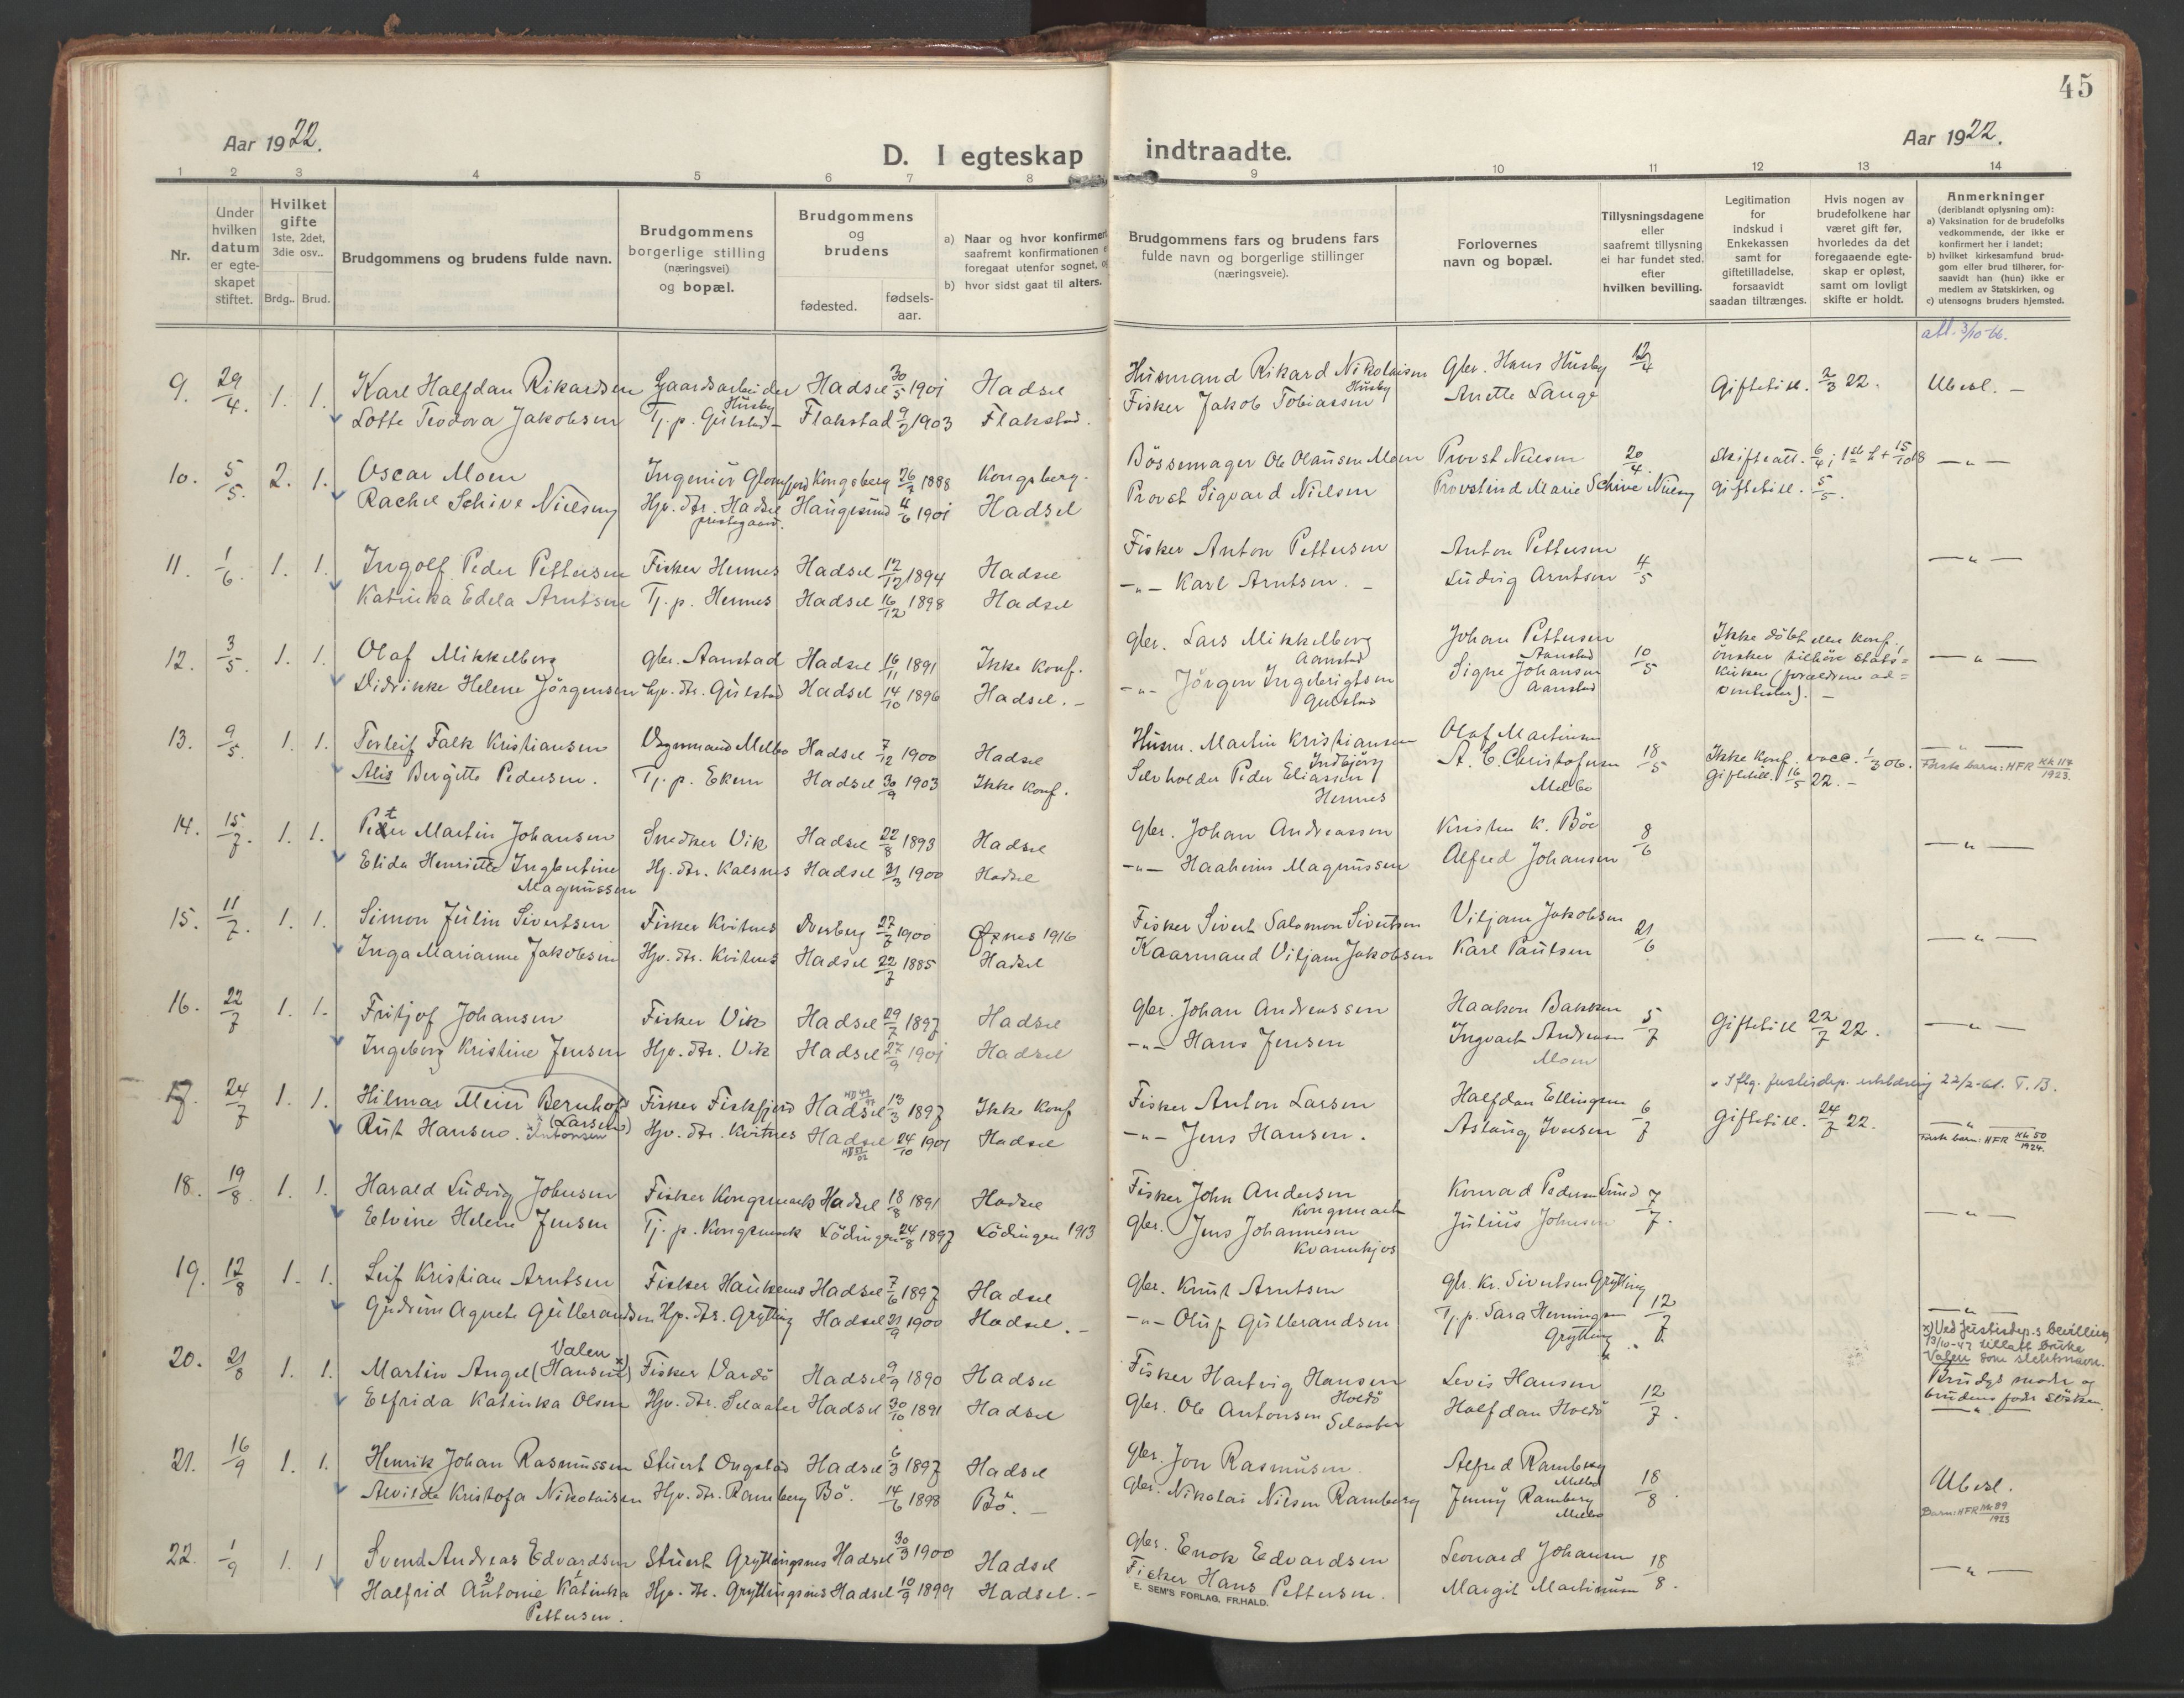 45
Aar 1922.
Aar 1922.
D. I egteskap indtraadte.
1 2 3 4 5 6 7 8 9 10 11 12 13 14
Nr.
Under hvilken datum er egteskapet stiftet.
Hvilket gifte 1ste, 2det, 3die osv..
Brdg.. Brud.
Brudgommens og brudens fulde navn.
Brudgommens borgerlige stilling (næringsvei) og bopæl.
Brudgommens og brudens
fødested. fødsels-aar.
a) Naar og hvor konfirmert
saafremt konfirmationen
foregaat utenfor sognet,
b) hvor sidst gaat til alters.
Brudgommens fars og brudens fars
fulde navn og borgerlige stillinger
(næringsveie).
Forlovernes navn og bopæl.
Tillysningsdagene eller saafremt tillysning ei har fundet sted. efter hvilken bevilling.
Legitimation for indskud i Enkekassen samt for giftetilladelse, forsaavidt saadan tiltrænges.
Hvis nogen av brudefolkene har været gift før, hvorledes da det foregaaende egteskap er opløst, samt om lovligt skifte er holdt.
Anmerkninger
(deriblandt oplysning om):
a) Vaksination for de brudefolks vedkommende, der ikke er konfirmert her i landet;
b) hvilket kirkesamfund brudgom eller brud tilhører, forsaavidt han (hun) ikke er medlem av Statskirken, og
c) utensogns bruders hjemsted.
att. 3/10-66.
9. 29/4. 1. 1. Karl Halfdan Rikardsen Gaardsarbeider Husby Hadsel 30/5 1901 Hadsel Husmand Rikard Nikolaisen Husby Gbr. Hans Husby 12/4 Giftetill. 2/3 22. Ubesl. -
Lotte Teodora Jakobsen Tj. p. Gulstad Flakstad 1903 Flakstad. Fisker Jakob Tobiassen Anette Lange
10. 5/5. 2. 1. Oscar Moen Ingeniör Glomfjord Kongsberg 1888 Kongsberg. Bössemager Ole Olausen Moen Provst Nielsen 20/4. Skifteatt. 6/4; 15/10 18 -"-
Rachel Schive Nielsen Hjv. dtr. Hadsel prestegaard. Haugesund 4/6 1901 Hadsel Provst Sigvard Nielsen Provstinde Marie Schive Nielsen Giftetill. 5/5.
11. 1/6. 1. 1. Ingolf Peder Pettersen Fisker Hennes Hadsel 12/12 1894 Hadsel Fisker Anton Pettersen Anton Pettersen 4/5 -"-
Katinka Edela Arntsen Tj. p. Hennes Hadsel 16/12 1898 Hadsel -"- Karl Arntsen. - Ludvig Arntsen
12. 3/5. 1. 1. Olaf Mikkelborg Gbr. Aanstad Hadsel 16/11 1891 Ikke konf. Gbr. Lars Mikkelborg Aanstad Johan Pettersen Aanstad 10/5 Ikke döbt eller konf., önsker tilhöre statskirken (forældrene adventister). - -"-
Didrikke Helene Jörgensen Hjv. dtr. Gulstad Hadsel 14/10 1896 Hadsel. - -"- Jörgen Ingebrigtsen Gulstad Signe Johansen Aanstad
13. 9/5. 1. 1. Torleif Falk Kristiansen Vognmand Melbo Hadsel 7/12 1900 Hadsel Husm. Martin Kristiansen Indbjörg Olaf Martinsen 18/5 Ikke konf. vacc. 1/3 06. -"-
Alis Bergitte Pedersen. Tj. p. Ekern Hadsel 30/9 1903 Ikke konf. Selveholder Peder Eliassen Hennes A. C. Christofersen Melbo Giftetill. 16/5 22. - Förste barn: HFR Kk 114/1923.
14. 15/7. 1. 1. Petter Martin Johansen Snedker Vik Hadsel 22/8 1893 Hadsel Gbr. Johan Andreassen Kristen K. Böe 8/6 -"-
Elida Henriette Ingbertine Magnussen Hj. dtr. Kalsnes Hadsel 31/3 1900 Hadsel -"- Haakeins Magnussen Alfred Johansen
15. 11/7. 1. 1. Simon Julin Sivertsen Fisker Kvitnes Dverberg 27/7 1900 Öksnes 1916 Fisker Sivert Salomon Sivertsen Viljam Jakobsen 21/6 -"-
Inga Marianne Jakobsen Hjv. dtr. Kvitnes Hadsel 22/7 1885 Hadsel Kaarmand Viljam Jakobsen Karl Paulsen
16. 22/7 1. 1. Fritjof Johansen Fisker Vik Hadsel 29/7 1897 Hadsel Gbr. Johan Andreassen Haakon Bakken 5/7 Giftetill 22/7 22. -"-
Ingeborg Kristine Jensen Hjv. dtr. Vik Hadsel 27/9 1901 Hadsel -"- Hans Jensen Ingvart Andreasen Moen
17. 24/7 1. 1. Hilmar Meier Bernhoft (Larsen) Antonsen Fisker Fiskfjord Hadsel 13/3 1897 Ikke konf Fisker Anton Larsen Halfdan Ellingsen 6/7 Iflg. justisdep. utbldning 22/2-61. T. B.
Rut Hansen. Hjv. dtr. Kvitnes Hadsel 24/10 1901 Hadsel -"- Jens Hansen. Aslaug Iversen Giftetill. 24/7 22. -"- Förste barn: HFR Kk 50/1924.
18. 19/8. 1. 1. Harald Ludvig Johnsen Fisker Kongsmark Hadsel 18/8 1891 Hadsel Fisker John Andersen Kongsmark Konrad Pedersen Sund 7/7. -"-
Elvine Helene Jensen Tj. p. Kongsmark Lödingen 24/8 1897 Lödingen 1913 Gbr. Jens Johannesen Kvannkjos Julius Johnsen
19. 12/8 1. 1. Leif Kristian Arntsen Fisker Haukenes Hadsel 7/6 1897 Hadsel Gbr. Knut Arntsen Gbr. Kr. Sivertsen Grytting 12/7
Gudrun Agnete Gulbrandsen Hjv. dtr. Grytting Hadsel 21/9 1900 Hadsel. - -"- Oluf Gulbrandsen Tj. p. Sara Henningsen Grytting -"-
20. 21/8 1. 1. Martin Angel (Hansen) Valen x) Fisker Vardö Hadsel 9/9 1890 Hadsel Fisker Hartvig Hansen Holdö Levis Hansen 12/7. x) Ved Justisdep.s bevilling 13/10-47 tillatt bruke Valen som slektsnavn.
Elfrida Katinka Olsen Hjv. dtr. Selaater Hadsel 30/10 1891 Hadsel Gbr. Ole Antonsen Selaater Halfdan Holdö Brudgs moder og brudens fader sösken. -"-
21. 16/9 1. 1. Henrik Johan Rasmussen Stuert Ongstad Hadsel 6/3 1897 Hadsel Gbr. Jon Rasmusen Alfred Ramberg Melbo 18/8. Ubesl.
Alvilde Kristofa Nikolaisen Hjv. dtr. Ramberg Bö. 14/6 1898 Bö. - Gbr. Nikolai Nilsen Ramberg Jenny Ramberg Melbo Barn: HFR Kk 89/1923
22. 1/9 1. 1 Svend Andreas Edvardsen Stuert Gryttingsnes Hadsel 30/3 1900 Hadsel Gbr. Enok Edvardsen Leonard Johansen 18/8. -"-
Halfrid Antonie Katinka Pettersen. Hjv. dtr. Gryttingsnes Hadsel 10/9 1899 Hadsel. - Fisker Hans Pettersen. Margit Martinusen
E. SEM'S FORLAG, FR.HALD.